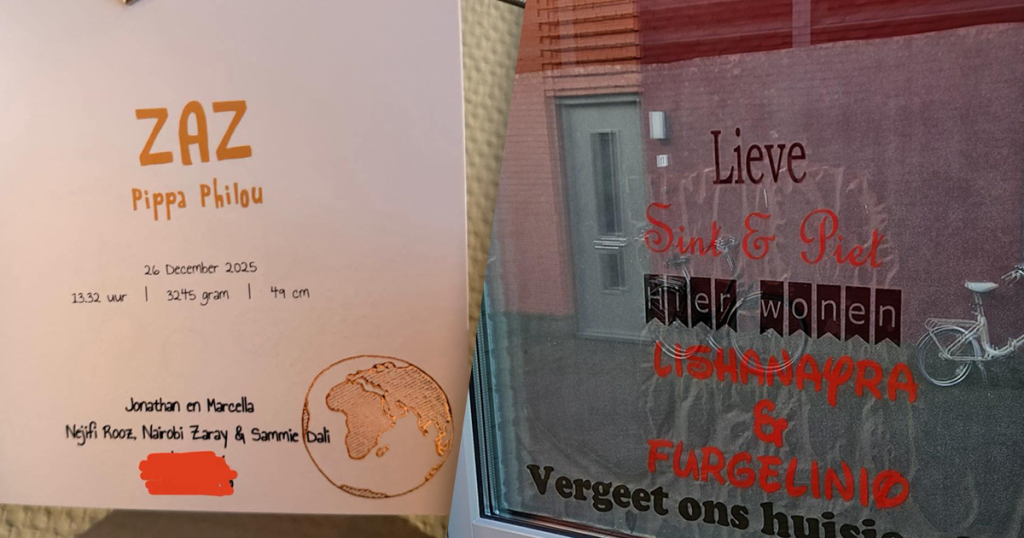 ZAZ
Pippa Philou
26 December 2025
13.32 uur | 3245 gram | 49 cm
Jonathan en Marcella
Nejifi Rooz, Nairobi Zaray & Sammie Dali
Lieve
Sint & Piet
Hier wonen
LISHANAYRA
&
FURGELINIO
Vergeet ons huisje